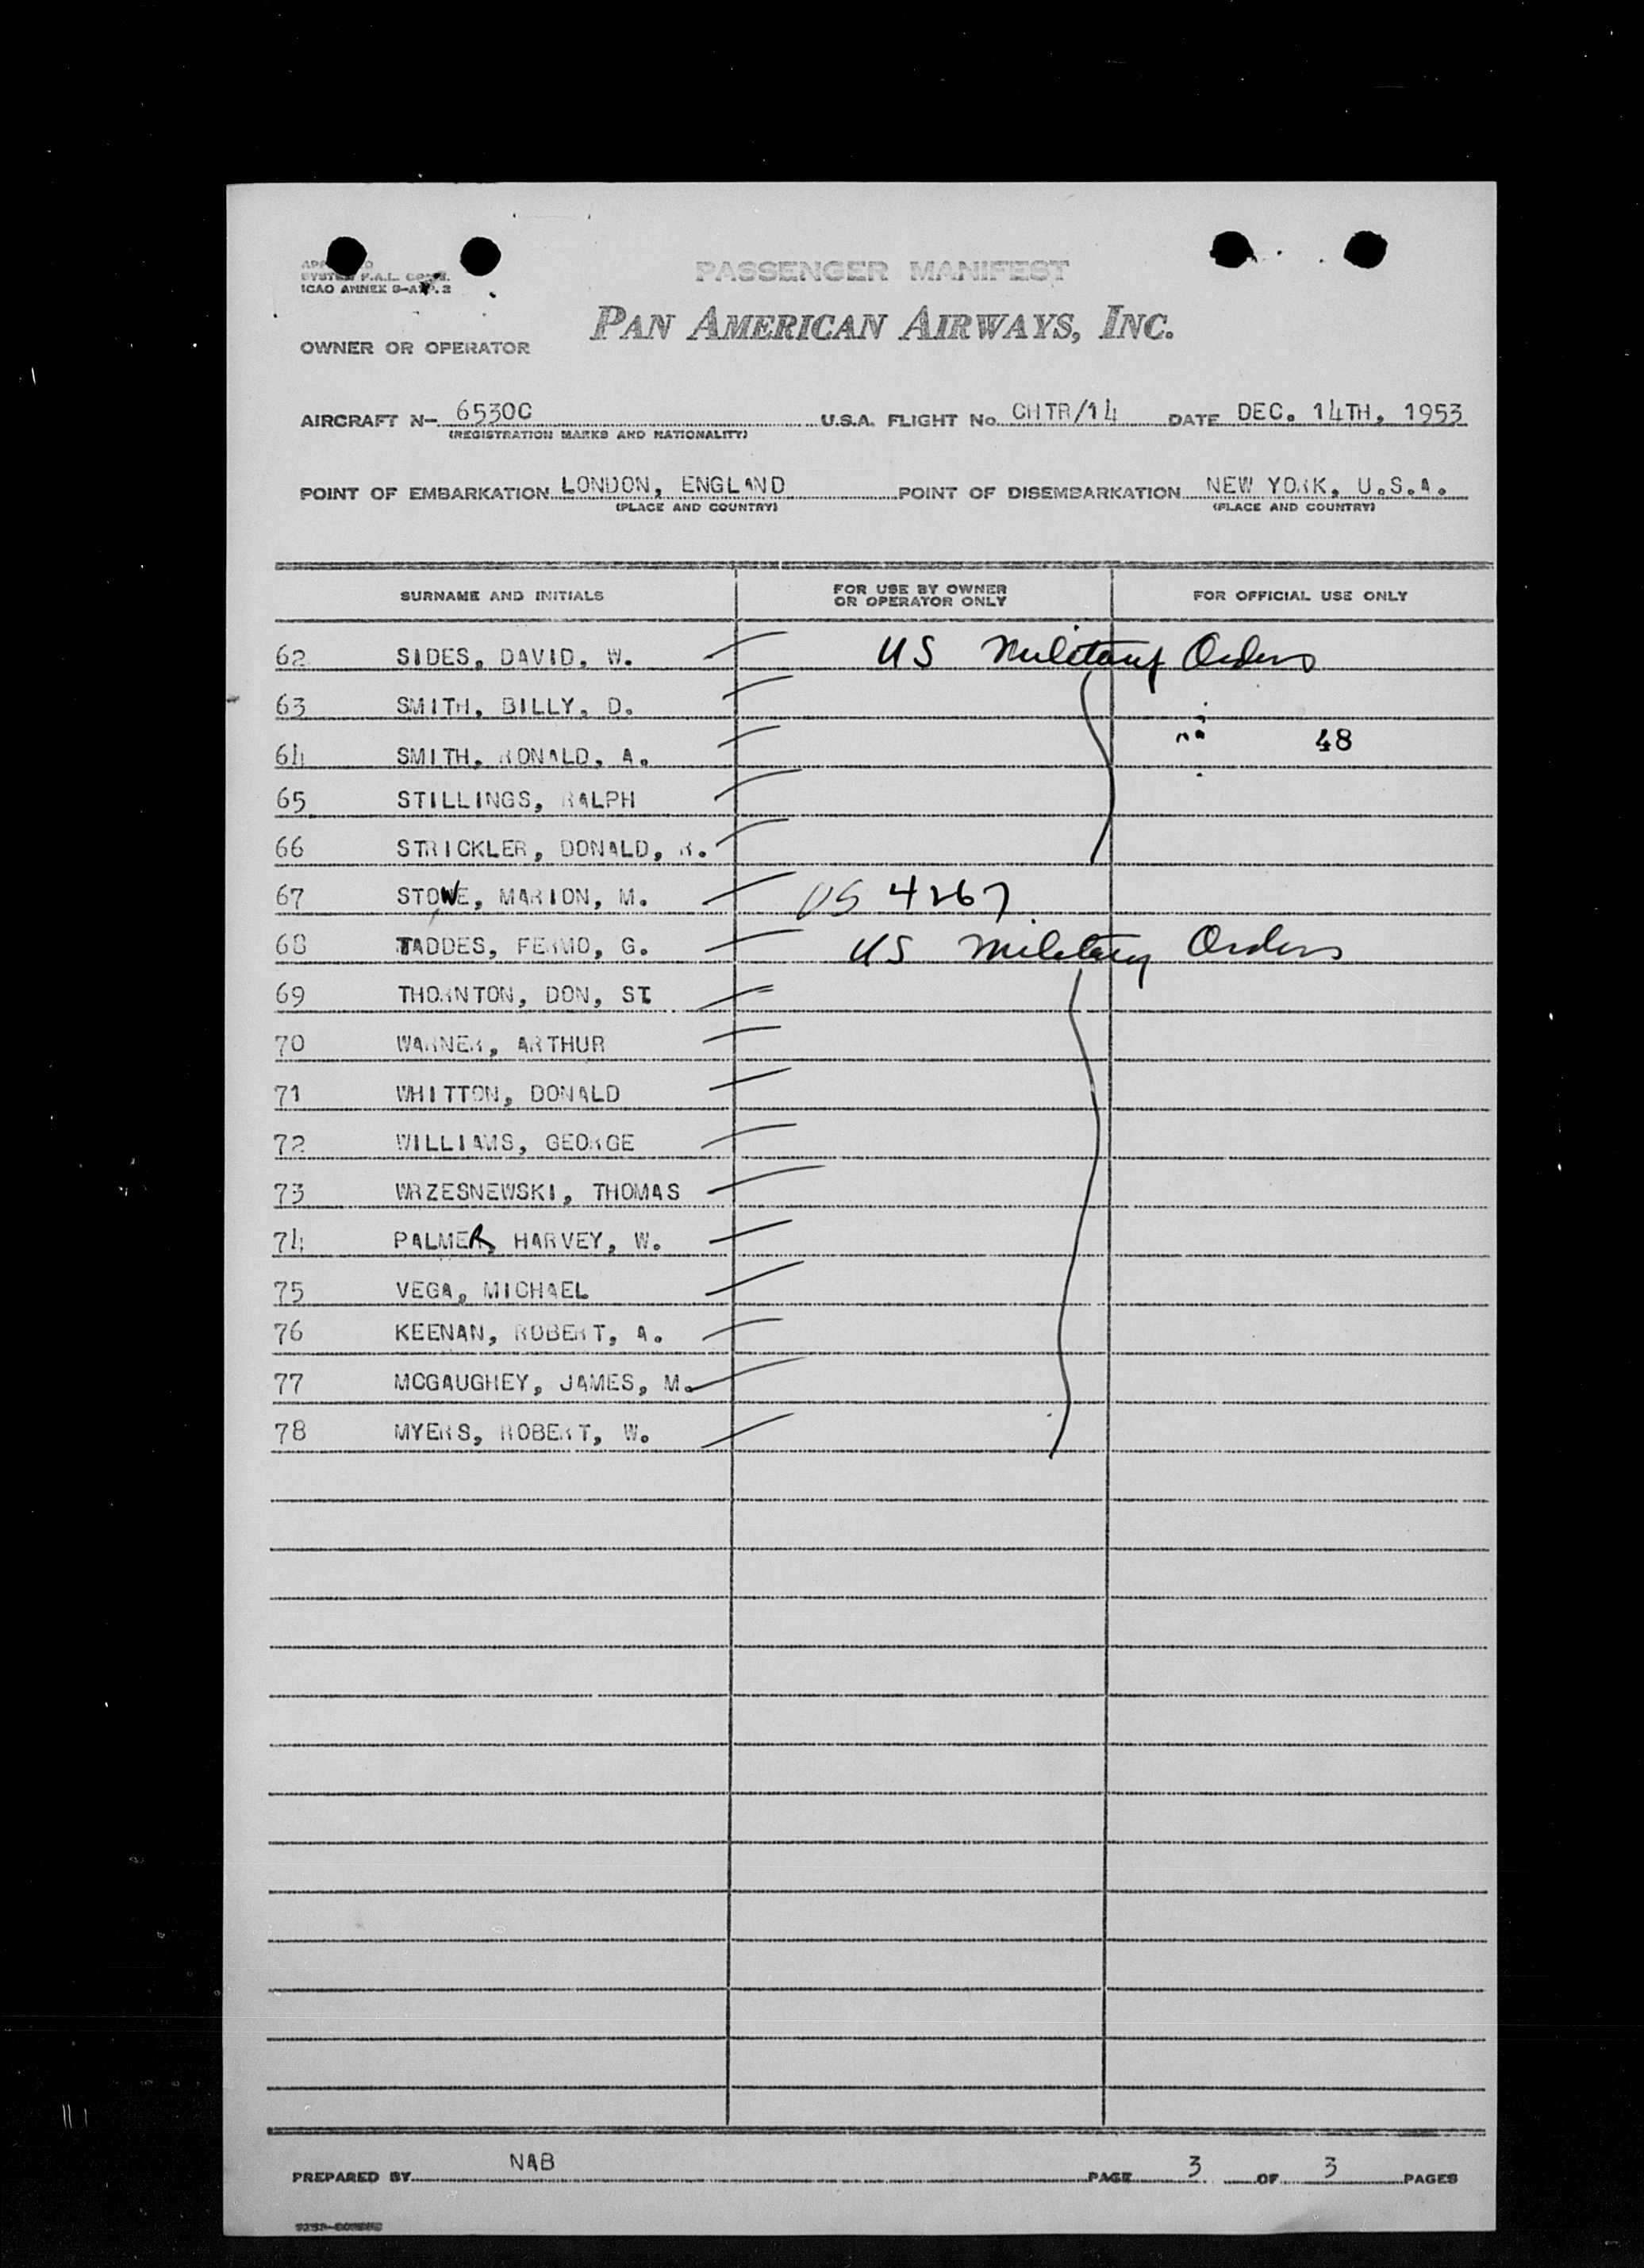 PASSENGER MANIFEST
ICAO ANNEX 9-APP. 2
PAN AMERICAN AIRWAYS, INC.
OWNER OR OPERATOR
AIRCRAFT N- 6530C U.S.A. FLIGHT No. CHTR/14 DATE DEC. 14TH, 1953
(REGISTRATION MARKS AND NATIONALITY)
POINT OF EMBARKATION LONDON, ENGLAND POINT OF DISEMBARKATION NEW YORK, U.S.A.
(PLACE AND COUNTRY) (PLACE AND COUNTRY)
SURNAME AND INITIALS FOR USE BY OWNER OR OPERATOR ONLY FOR OFFICIAL USE ONLY
62 SIDES, DAVID, W. US Military Orders
63 SMITH, BILLY, D.
64 SMITH, RONALD, A. 48
65 STILLINGS, RALPH
66 STRICKLER, DONALD, R.
67 STOWE, MARION, M. US 4267
68 TADDES, FERMO, G. US Military Orders
69 THORNTON, DON, ST
70 WARNER, ARTHUR
71 WHITTON, DONALD
72 WILLIAMS, GEORGE
73 WRZESNEWSKI, THOMAS
74 PALMER, HARVEY, W.
75 VEGA, MICHAEL
76 KEENAN, ROBERT, A.
77 MCGAUGHEY, JAMES, M.
78 MYERS, ROBERT, W.
PREPARED BY NAB PAGE 3 OF 3 PAGES